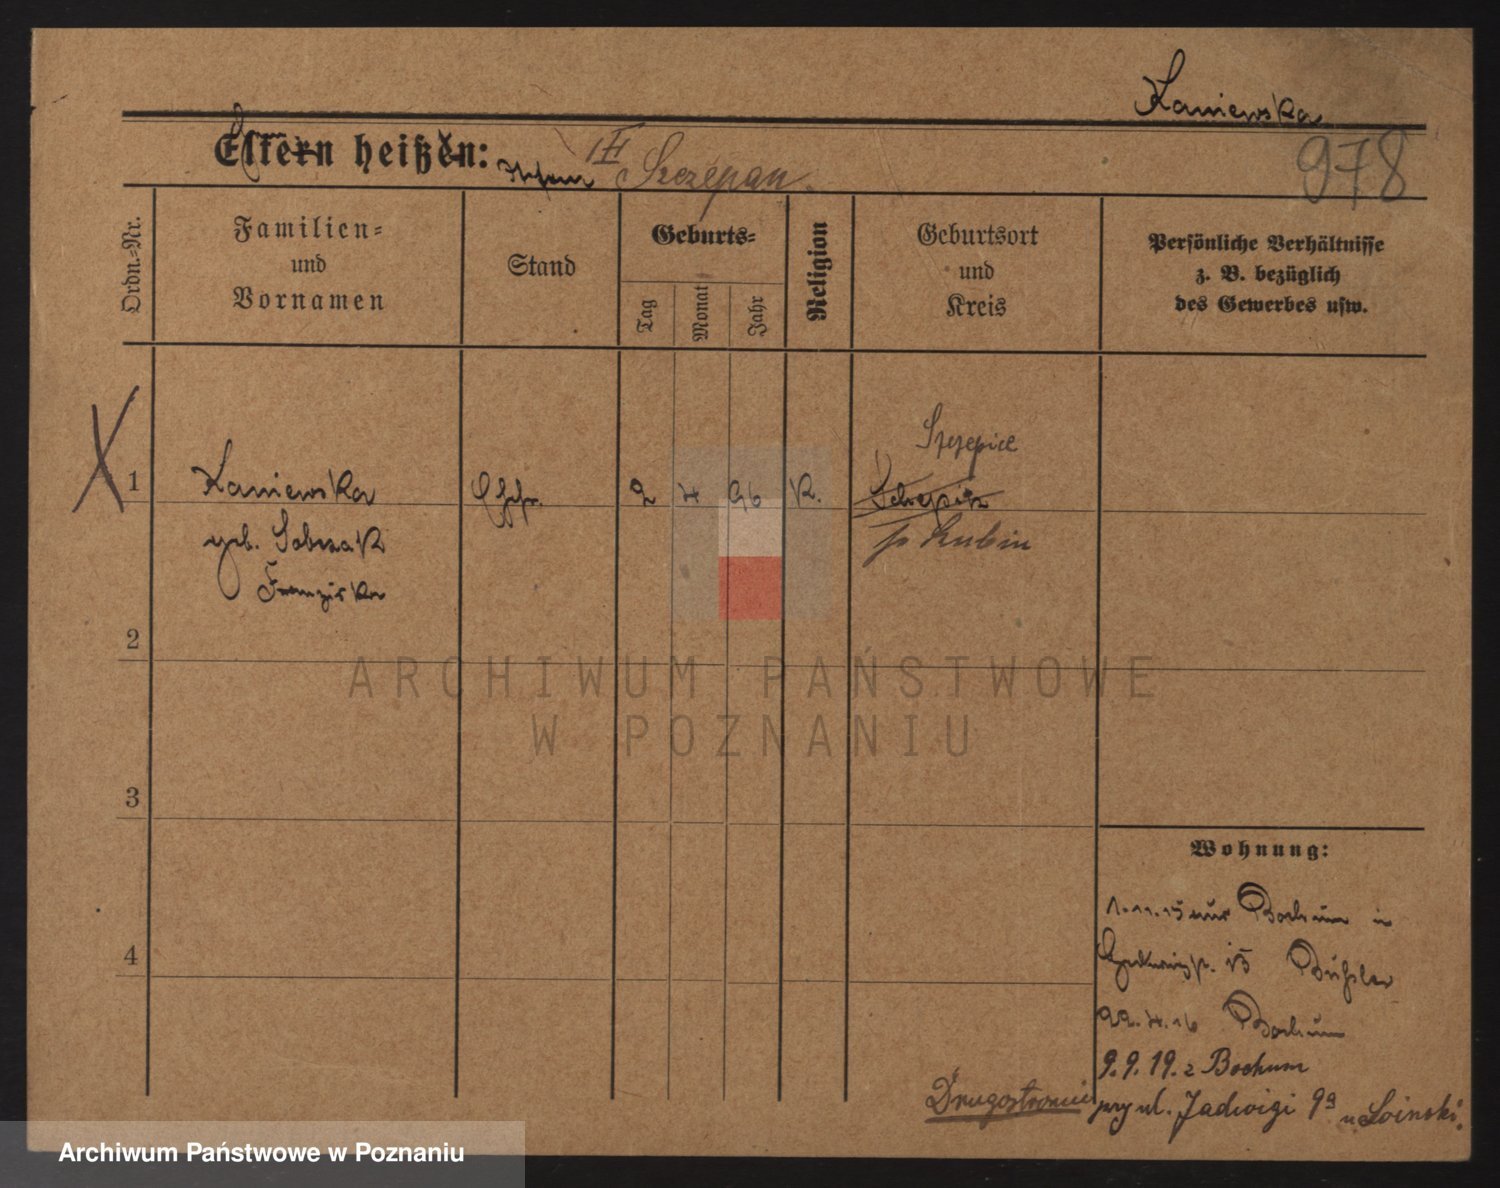 Kaniewska
Eltern heißen: III Szczepan.
978
Ordn.-Nr.
Familien-
und
Vornamen
Stand
Geburts-
Tag
Monat
Jahr
Religion
Geburtsort
und
Kreis
Persönliche Verhältnisse
z. B. bezüglich
des Gewerbes usw.
1
Kaniewska
geb. Sobczak
Franziska
Ehefr.
2 4 96
K.
2
3
4
Wohnung:
1.11.15 aus Bochum in
22.4.16 Bochum
9.9.19. z Bochum
Drugostronie przy ul. Jadwigi 9a u Soinski.
ARCHIWUM PAŃSTWOWE
W POZNANIU
Archiwum Państwowe w Poznaniu